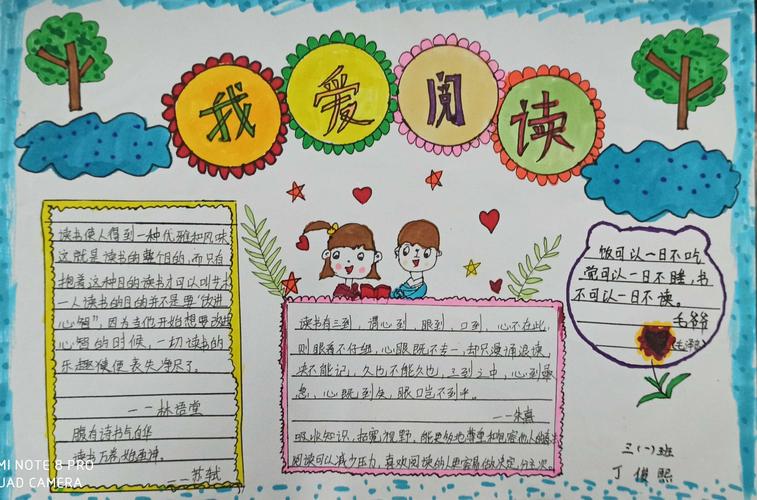 我爱阅读
读书使人得到一种优雅和风味
这就是读书的整个目的,而只有
抱着这种目的读书才可以叫艺术
一人读书的目的并不是要“改进
心智”,因为当他开始想要改进
心智的时候,一切读书的
乐趣便使丧失净尽了。
——林语堂
腹有诗书气自华
读书万卷始通神
——苏轼
读书有三到,谓心到,眼到,口到,心不在此,
则眼看不仔细,心眼既不专一,却只漫诵浪读,
决不能记,久也不能久也,三到之中,心到最
急,心既到矣,眼口岂不到乎。
——朱熹
吸收知识,拓宽视野,能更好地尊重和
阅读可以减少压力,喜欢阅读的人更容易做决定,分主次
饭可以一日不吃
觉可以一日不睡,书
不可以一日不读。
毛爷爷
三(一)班
丁俊熙
MI NOTE 8 PRO
QUAD CAMERA